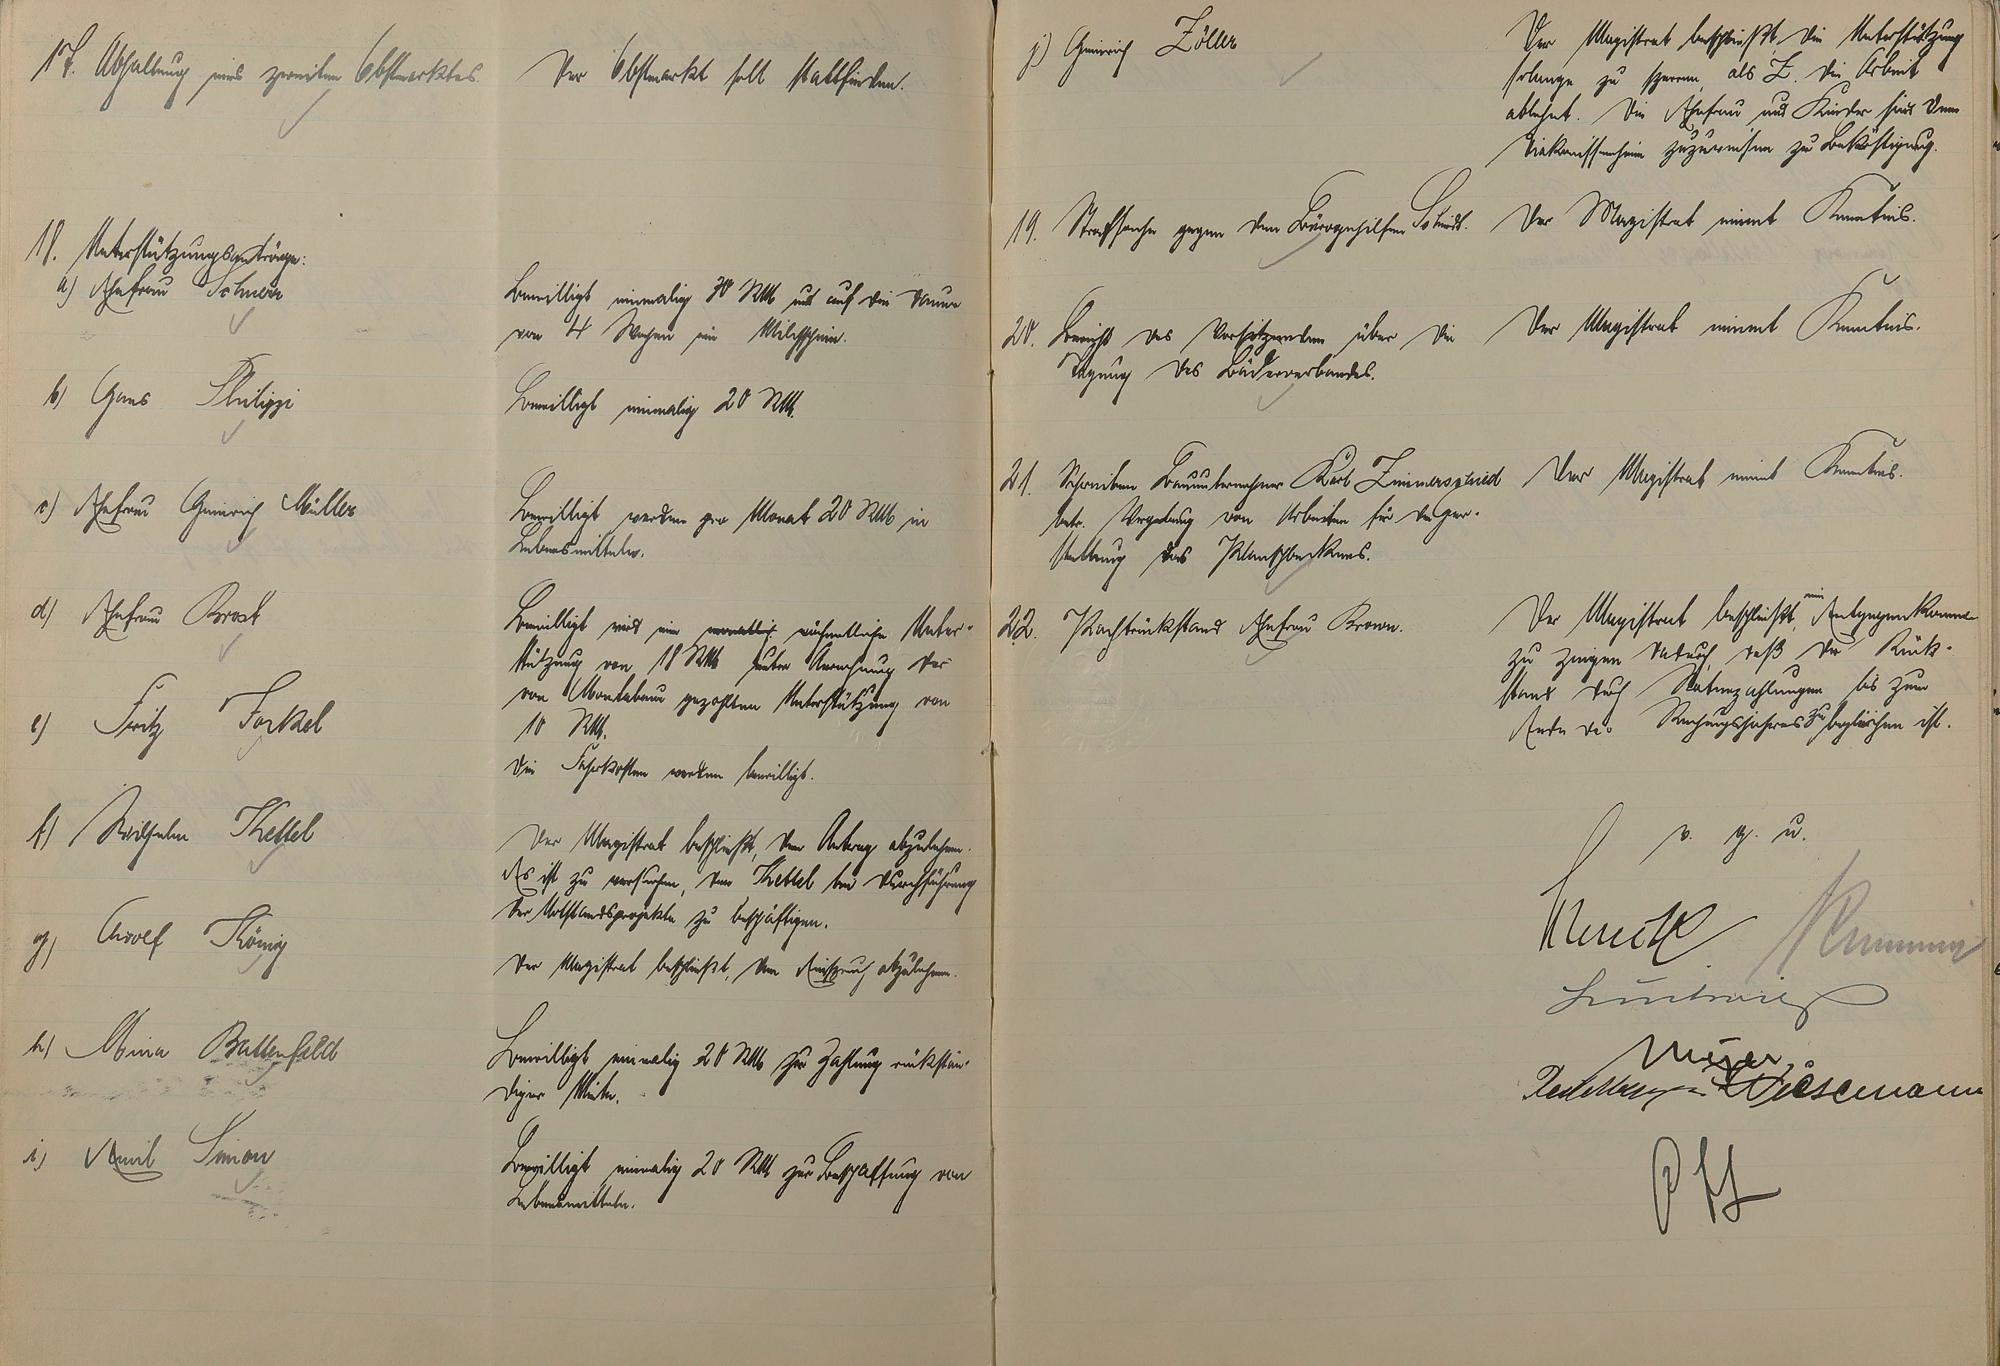 17. Abhaltung eines zweiten Obstmarktes.
Der Obstmarkt soll stattfinden.
18. Unterstützungsanträge:
a) Ehefrau Scherer
Bewilligt einmalig 30 RM und auf die Dauer
von 4 Wochen ein Milchschein.
b) Hans Philippi
Bewilligt einmalig 20 RM.
c) Ehefrau Heinrich Müller
Bewilligt werden pro Monat 20 RM in
Lebensmitteln.
d) Ehefrau Brost
Bewilligt wird eine monatlich wöchentliche Unter-
stützung von 18 RM unter Anrechnung der
von Montabaur gezahlten Unterstützung von
10 RM.
e) Fritz Forkel
Die Fahrkosten werden bewilligt.
f) Wilhelm Kettel
Der Magistrat beschließt, den Antrag abzulehnen.
Es ist zu versuchen, den Kettel bei Durchführung
der Notstandsprojekte zu beschäftigen.
g) Adolf König
Der Magistrat beschließt, den Einspruch abzulehnen.
h) Mina Battenfeld
Bewilligt einmalig 20 RM zur Zahlung rückstän-
diger Miete.
i) Emil Simon
Bewilligt einmalig 20 RM zur Beschaffung von
Lebensmitteln.
j) Heinrich Zöller
Der Magistrat beschließt, die Unterstützung
solange zu sperren, als Z. die Arbeit
ablehnt. Die Ehefrau und Kinder sind dem
Diakonissenheim zuzuweisen zu Beköstigung.
19. Strafsache gegen den Bürogehilfen Schmidt.
Der Magistrat nimmt Kenntnis.
20. Bericht des Vorsitzenden über die
Tagung des Bäderverbandes.
Der Magistrat nimmt Kenntnis.
21. Schreiben Bauunternehmer Karl Zimmerschied
betr. Vergebung von Arbeiten für die Her-
stellung des Planschbeckens.
Der Magistrat nimmt Kenntnis.
22. Pachtrückstand Ehefrau Kromm.
Der Magistrat beschließt, ein Entgegenkommen
zu zeigen dadurch, daß der Rück-
stand durch Ratenzahlungen bis zum
Ende des Rechnungsjahres zu begleichen ist.
v. g. u.
Ludwig
Meyer
Wiesemann